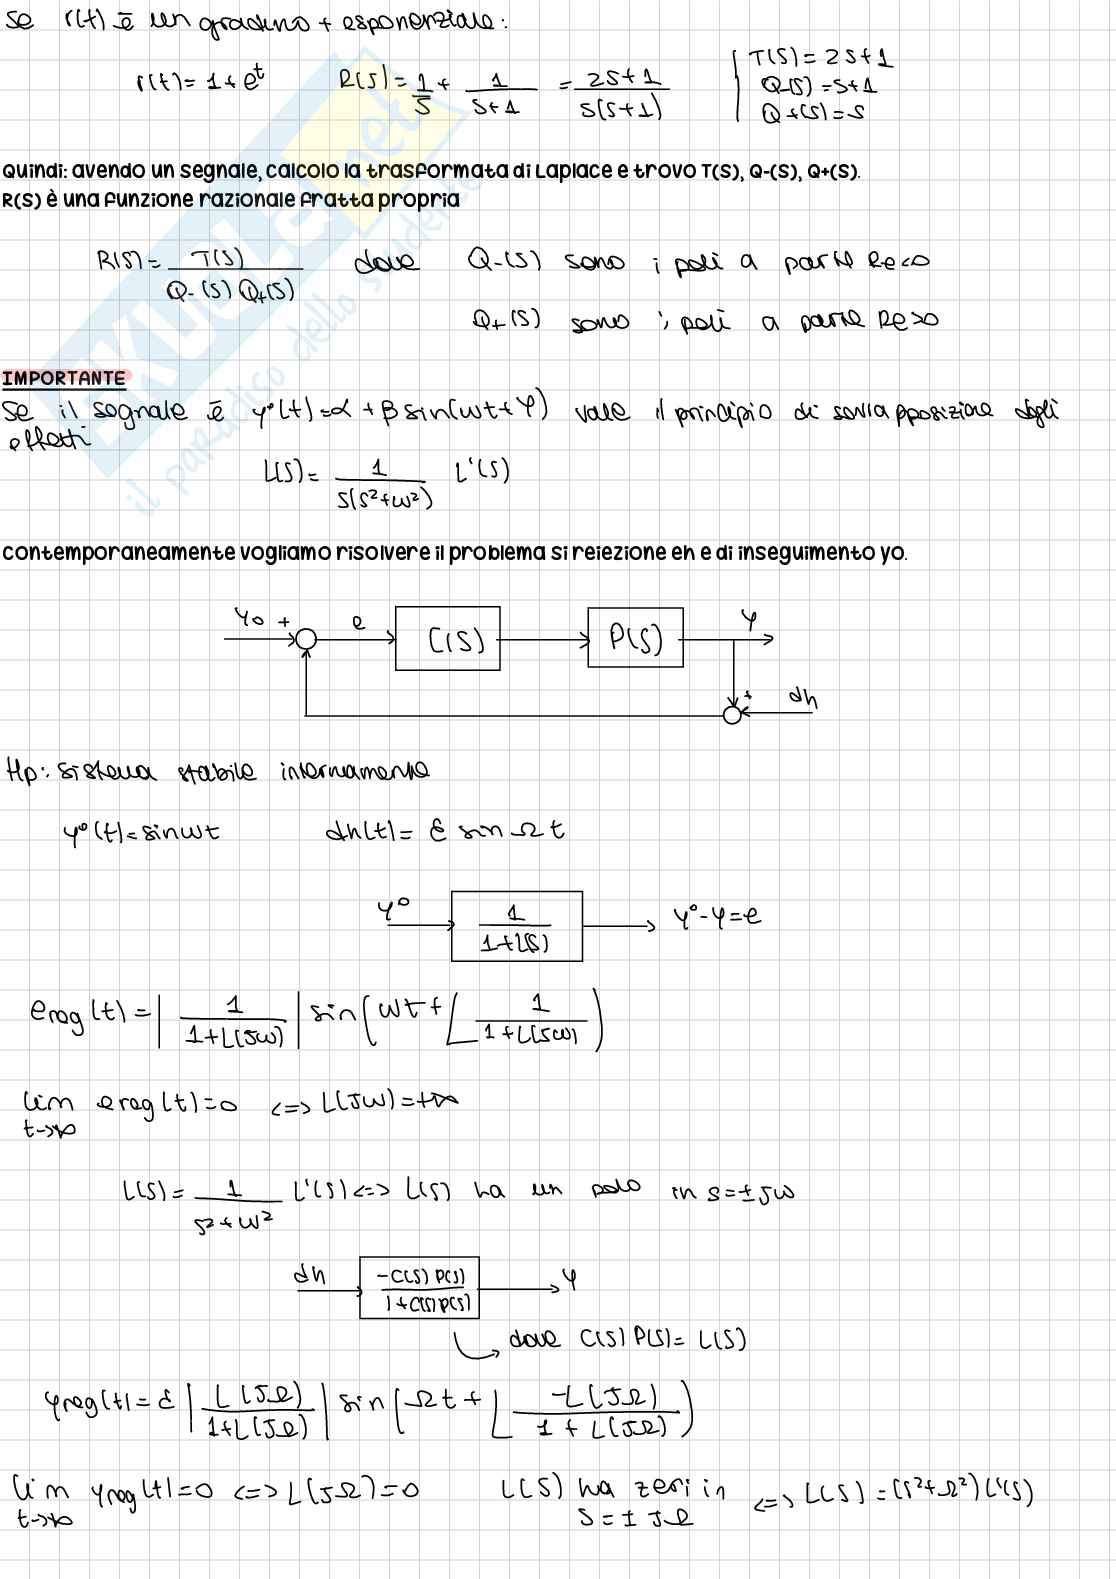 Se r(t) è un gradino + esponenziale:
r(t) = 1 + e^t R(S) = 1/S + 1/(S+1) = (2S+1)/(S(S+1))
T(S) = 2S+1
Q-(S) = S+1
Q+(S) = S
Quindi: avendo un segnale, calcolo la trasformata di Laplace e trovo T(S), Q-(S), Q+(S).
R(S) è una funzione razionale fratta propria
R(S) = T(S)/(Q-(S) Q+(S)) dove Q-(S) sono i poli a parte Re<0
Q+(S) sono i poli a parte Re>0
IMPORTANTE
Se il segnale è y°(t) = α + β sin(ωt+φ) vale il principio di sovrapposizione degli
effetti
L(S) = 1/(S(S²+ω²)) L'(S)
contemporaneamente vogliamo risolvere il problema si reiezione eh e di inseguimento yo.
yo + e C(S) P(S) y
+ dh
Hp: sistema stabile internamente
y°(t) = sin ωt dh(t) = ε sin Ωt
y° 1/(1+L(S)) y°-y=e
ereg(t) = |1/(1+L(Jω))| sin(ωt + ∠ 1/(1+L(Jω)))
lim t->∞ ereg(t) = 0 <=> L(Jω) = +∞
L(S) = 1/(S²+ω²) L'(S) <=> L(S) ha un polo in s = ± Jω
dh -C(S) P(S)/(1+C(S)P(S)) y
dove C(S) P(S) = L(S)
yreg(t) = ε |L(JΩ)/(1+L(JΩ))| sin(Ωt + ∠ -L(JΩ)/(1+L(JΩ)))
lim t->∞ yreg(t) = 0 <=> L(JΩ) = 0 L(S) ha zeri in S = ± JΩ <=> L(S) = (S²+Ω²) L'(S)
SKUOLA.net
il paradiso dello studente